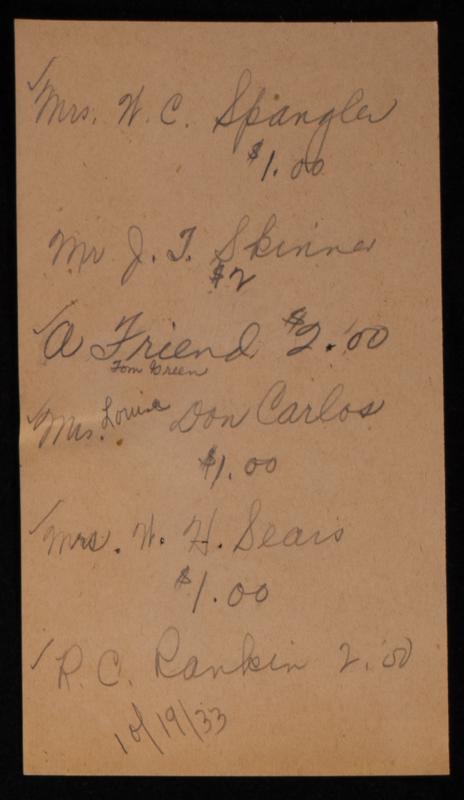 ✓ Mrs. W. C. Spangler
$1.00
Mr J. T. Skinner
$2
✓ A Friend $2.00
Tom Green
✓ Mrs. Louise Don Carlos
$1.00
✓ Mrs. W. H. Sears
$1.00
✓ R. C. Rankin 2.00
10/19/33